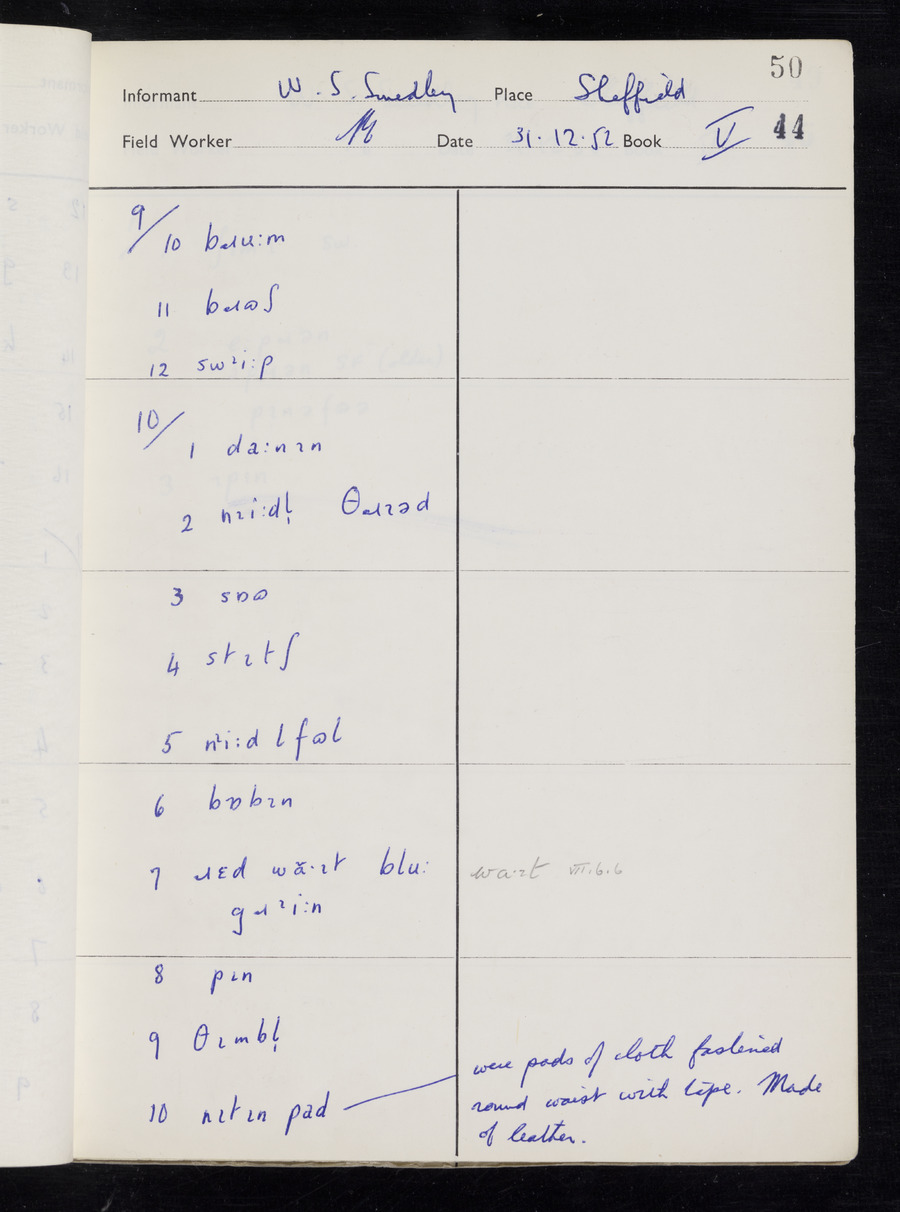 50
Informant W. S. Smedley Place Sheffield
Field Worker Date 31.12.52 Book V 44
9/10 bɹuːm
11 bɹɷʃ
12 swᶦiːp
10/1 daːnɪn
2 nɪiːdl̩ θɹɪəd
3 sɒɷ
4 stɪtʃ
5 nᶦiːdlfɷl
6 bɒbɪn
7 ɹɛd wăˑɪt bluː
waˑɪt VII.6.6
gɹᶦiːn
8 pɪn
9 θɪmbl̩
10 nɪtɪn pad
were pads of cloth fastened
round waist with tape. Made
of leather.